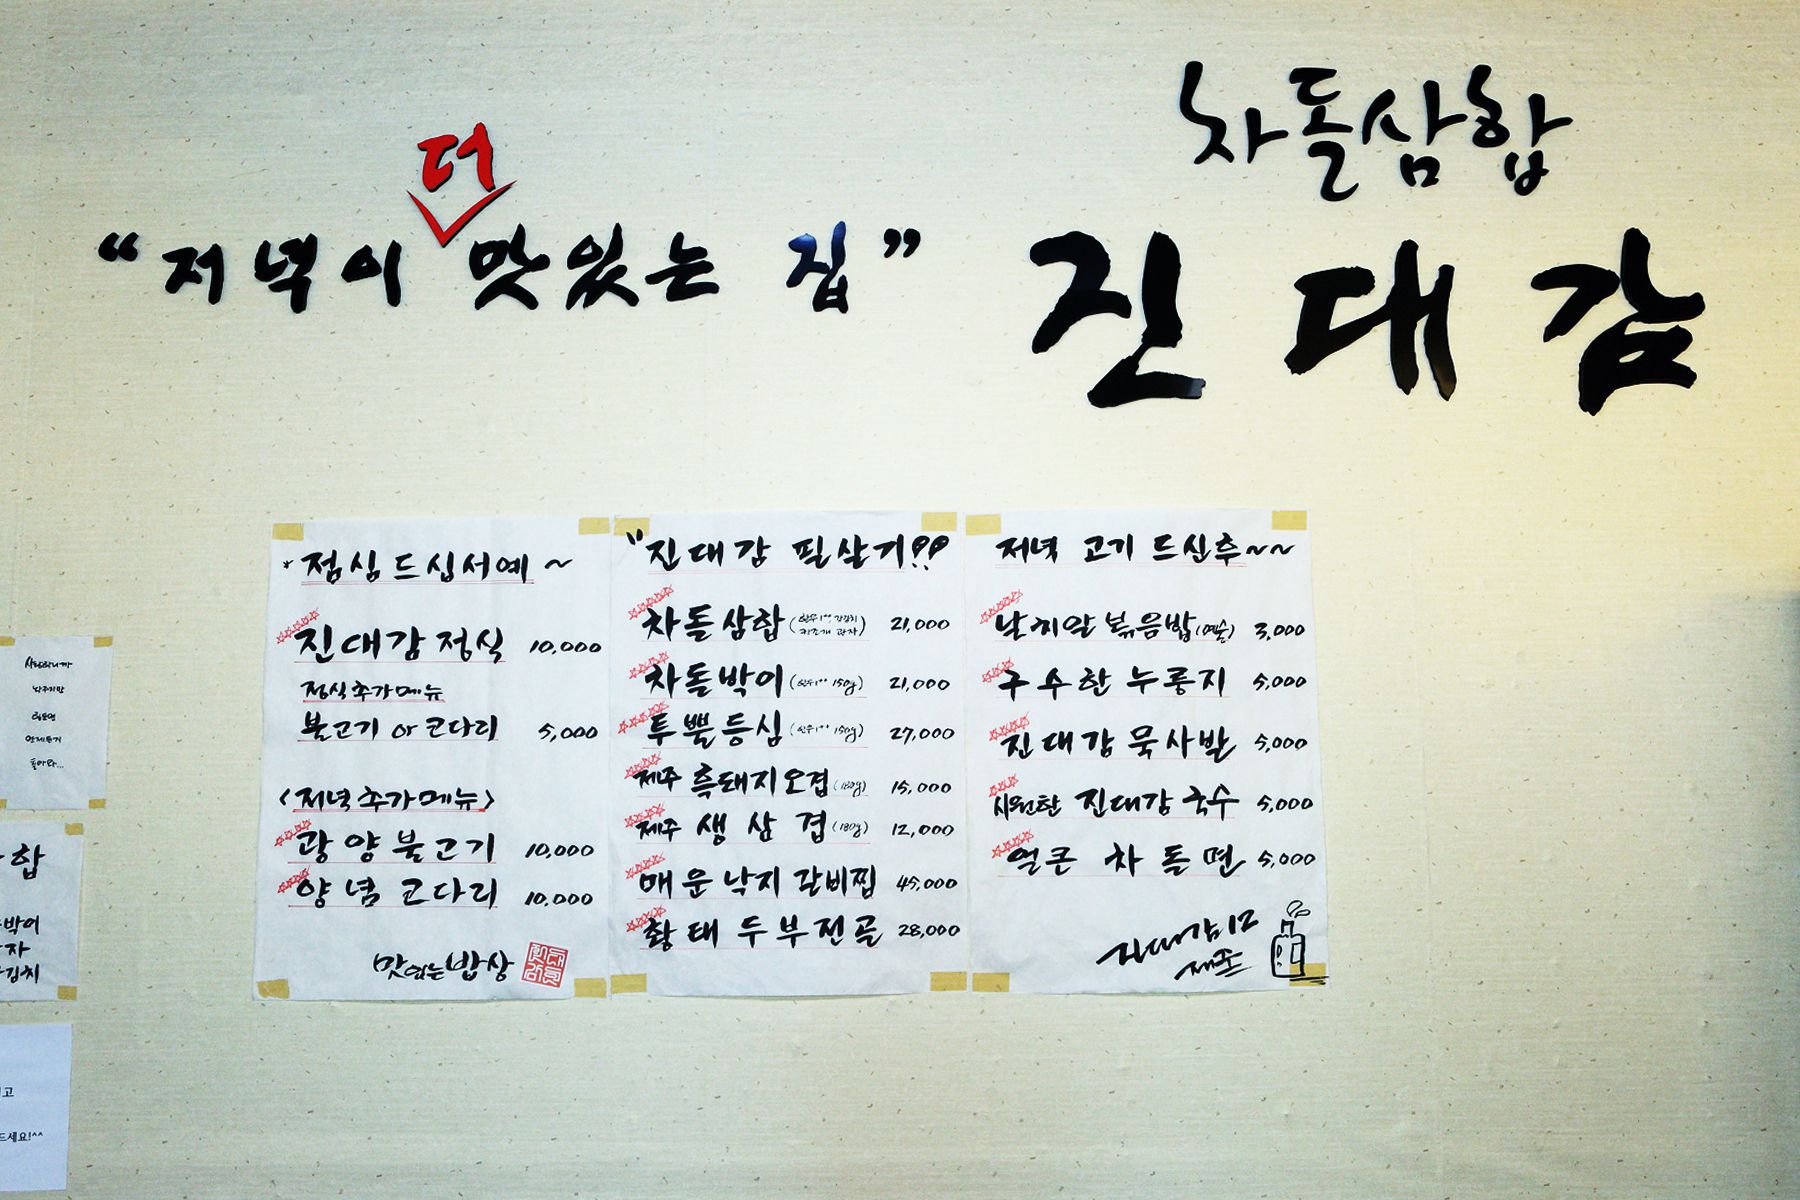 차돌삼합
더
“저녁이 맛있는 집”
진대감
* 점심 드십서예 ~
진대감정식 10,000
정식추가메뉴
불고기 or 코다리 5,000
<저녁추가메뉴>
광양불고기 10,000
양념 코다리 10,000
맛있는밥상
"진대감 필살기!?
차돌삼합 (한우1++ 갓김치 키조개 관자) 21,000
차돌박이 (한우1++ 150g) 21,000
투뿔등심 (한우1++ 150g) 27,000
제주 흑돼지오겹 (180g) 15,000
제주 생삼겹 (180g) 12,000
매운낙지갈비찜 45,000
황태두부전골 28,000
저녁 고기 드신후~~
날치알볶음밥 3,000
구수한누룽지 5,000
진대감묵사발 5,000
시원한 진대감국수 5,000
얼큰 차돌면 5,000
진대감 12
제주
합
박이
자
김치
고
드세요!^^